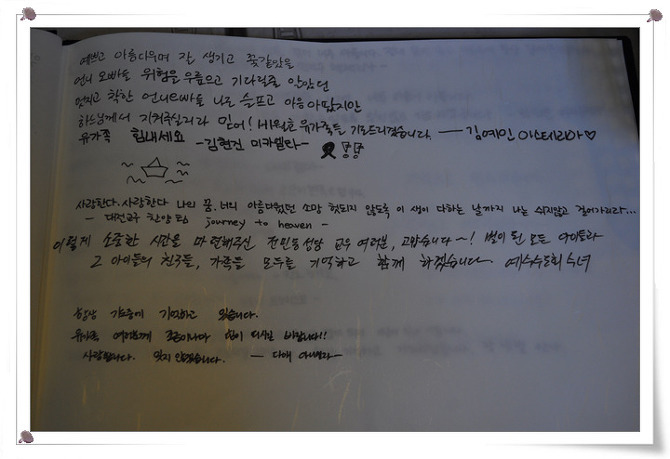 예쁘고 아름다우며 잘 생기고 꽃같았을
언니 오빠들 위험을 무릅쓰고 기다릴줄 알았던
멋지고 착한 언니오빠들 나도 슬프고 마음 아팠지만
하느님께서 지켜주실꺼라 믿어! 세월호 유가족들 기도드리겠습니다. — 김예인 ♡
유가족 힘내세요 -김현진 미카엘라-
사랑한다. 사랑한다 나의 꿈. 너의 아름다웠던 소망 헛되지 않도록 이 생이 다하는 날까지 나는 쉬지않고 걸어가리라...
- 대전교구 찬양팀 journey to heaven -
이렇게 소중한 시간을 마련해주신 전민동성당 교우 여러분, 고맙습니다~! 별이 된 모든 아이들과
그 아이들의 친구들, 가족들 모두를 기억하고 함께 하겠습니다. 예수수도회 수녀
항상 기도중에 기억하고 있습니다.
유가족 여러분께 조금이나마 힘이 되시길 바랍니다!!
사랑합니다. 잊지 않겠습니다. — 다애